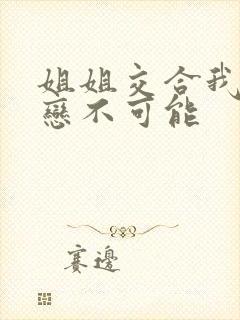 姐姐交合我
戀不可能
赛邊